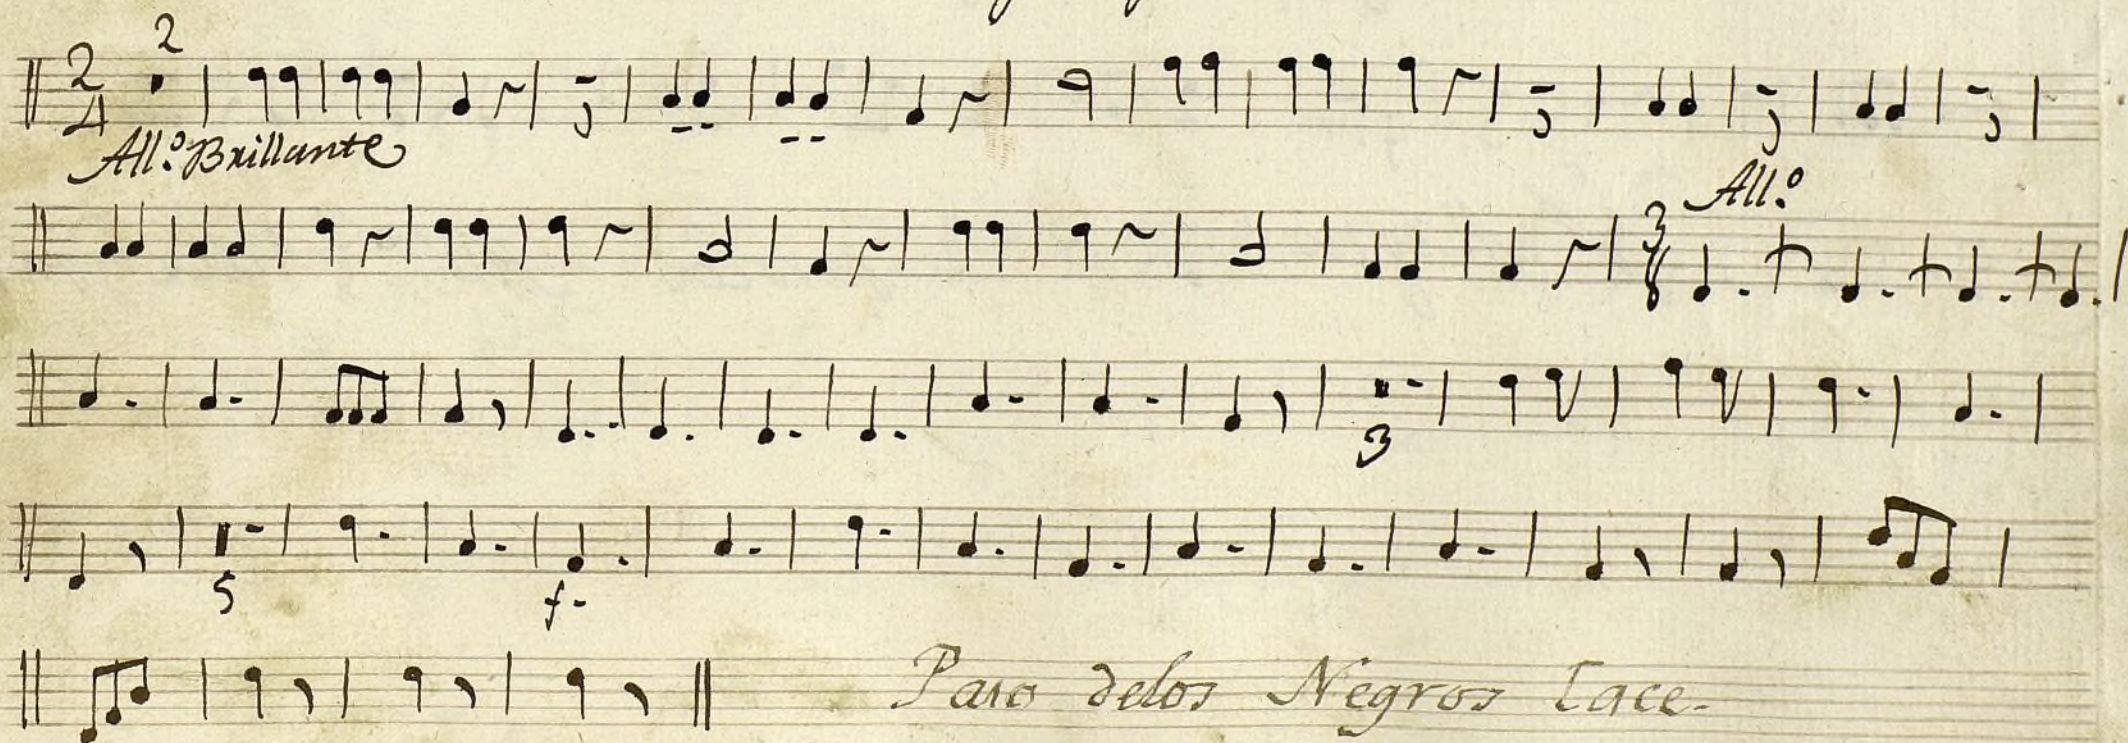 2
2
4
All.º Brillante
All.º
3
8
3
5
f.
Paso delos Negros Tace.